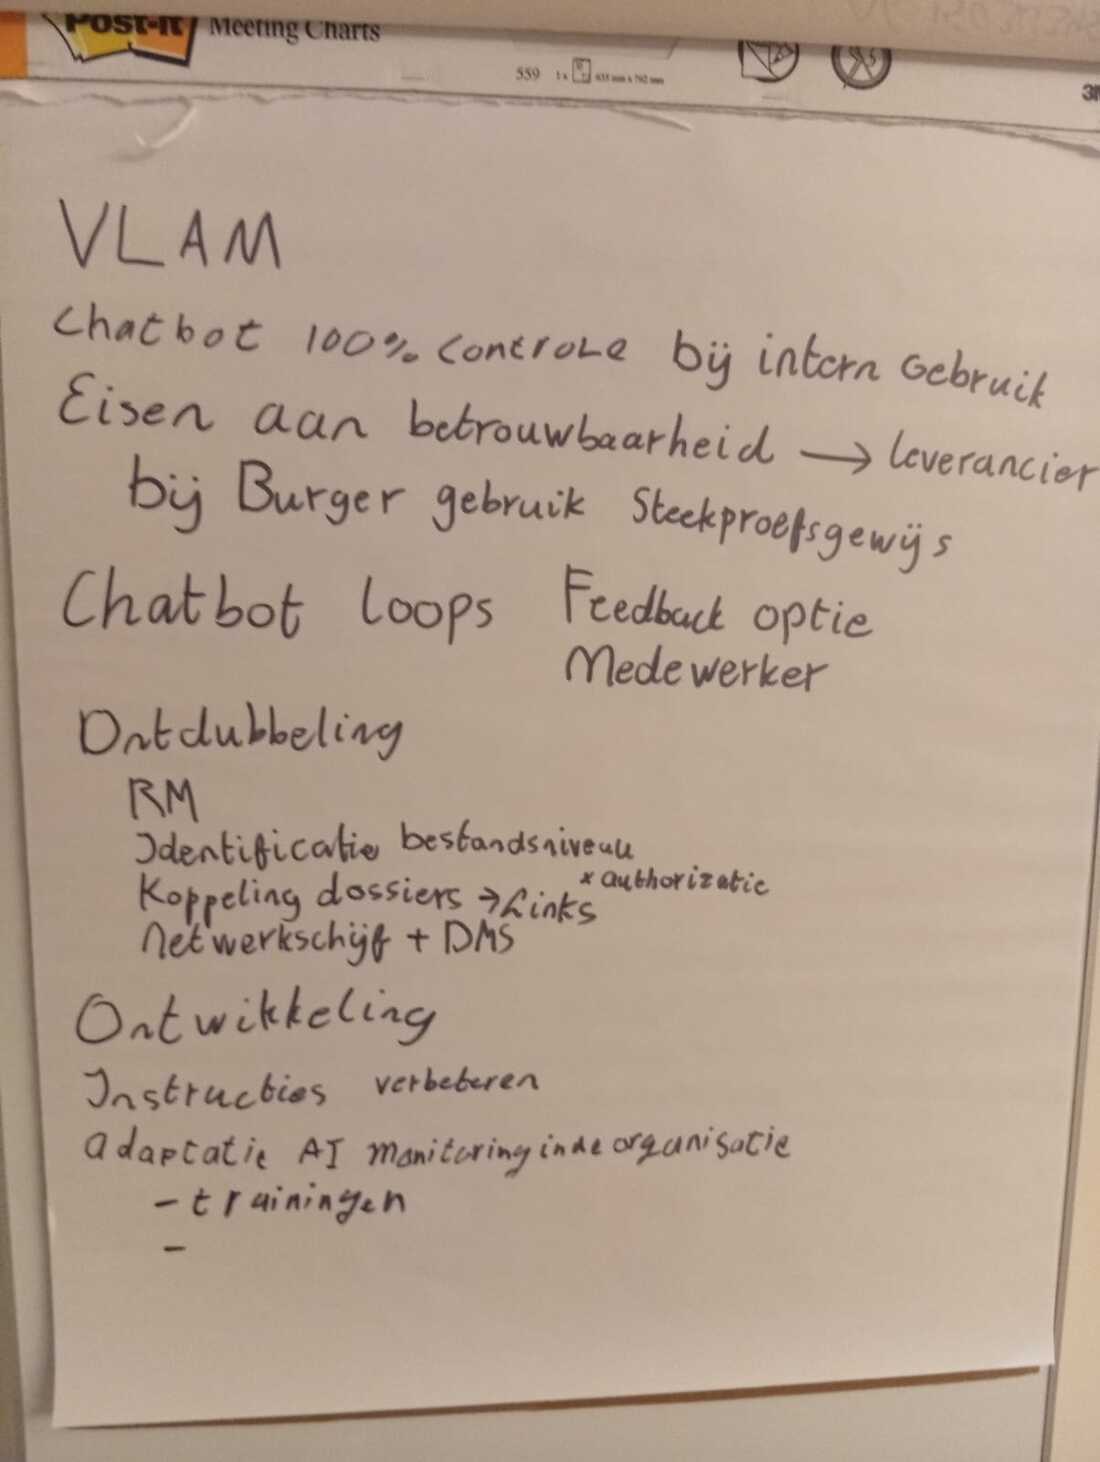 Post-it Meeting Charts
559 1x 635 mm x 762 mm
VLAM
Chatbot 100% controle bij intern Gebruik
Eisen aan betrouwbaarheid → leverancier
bij Burger gebruik Steekproefsgewijs
Chatbot loops Feedback optie
Medewerker
Ontdubbeling
RM
Identificatie bestandsniveau
* authorizatie
Koppeling dossiers → Links
Netwerkschijf + DMS
Ontwikkeling
Instructies verbeteren
adaptatie AI monitoring in de organisatie
- trainingen
-